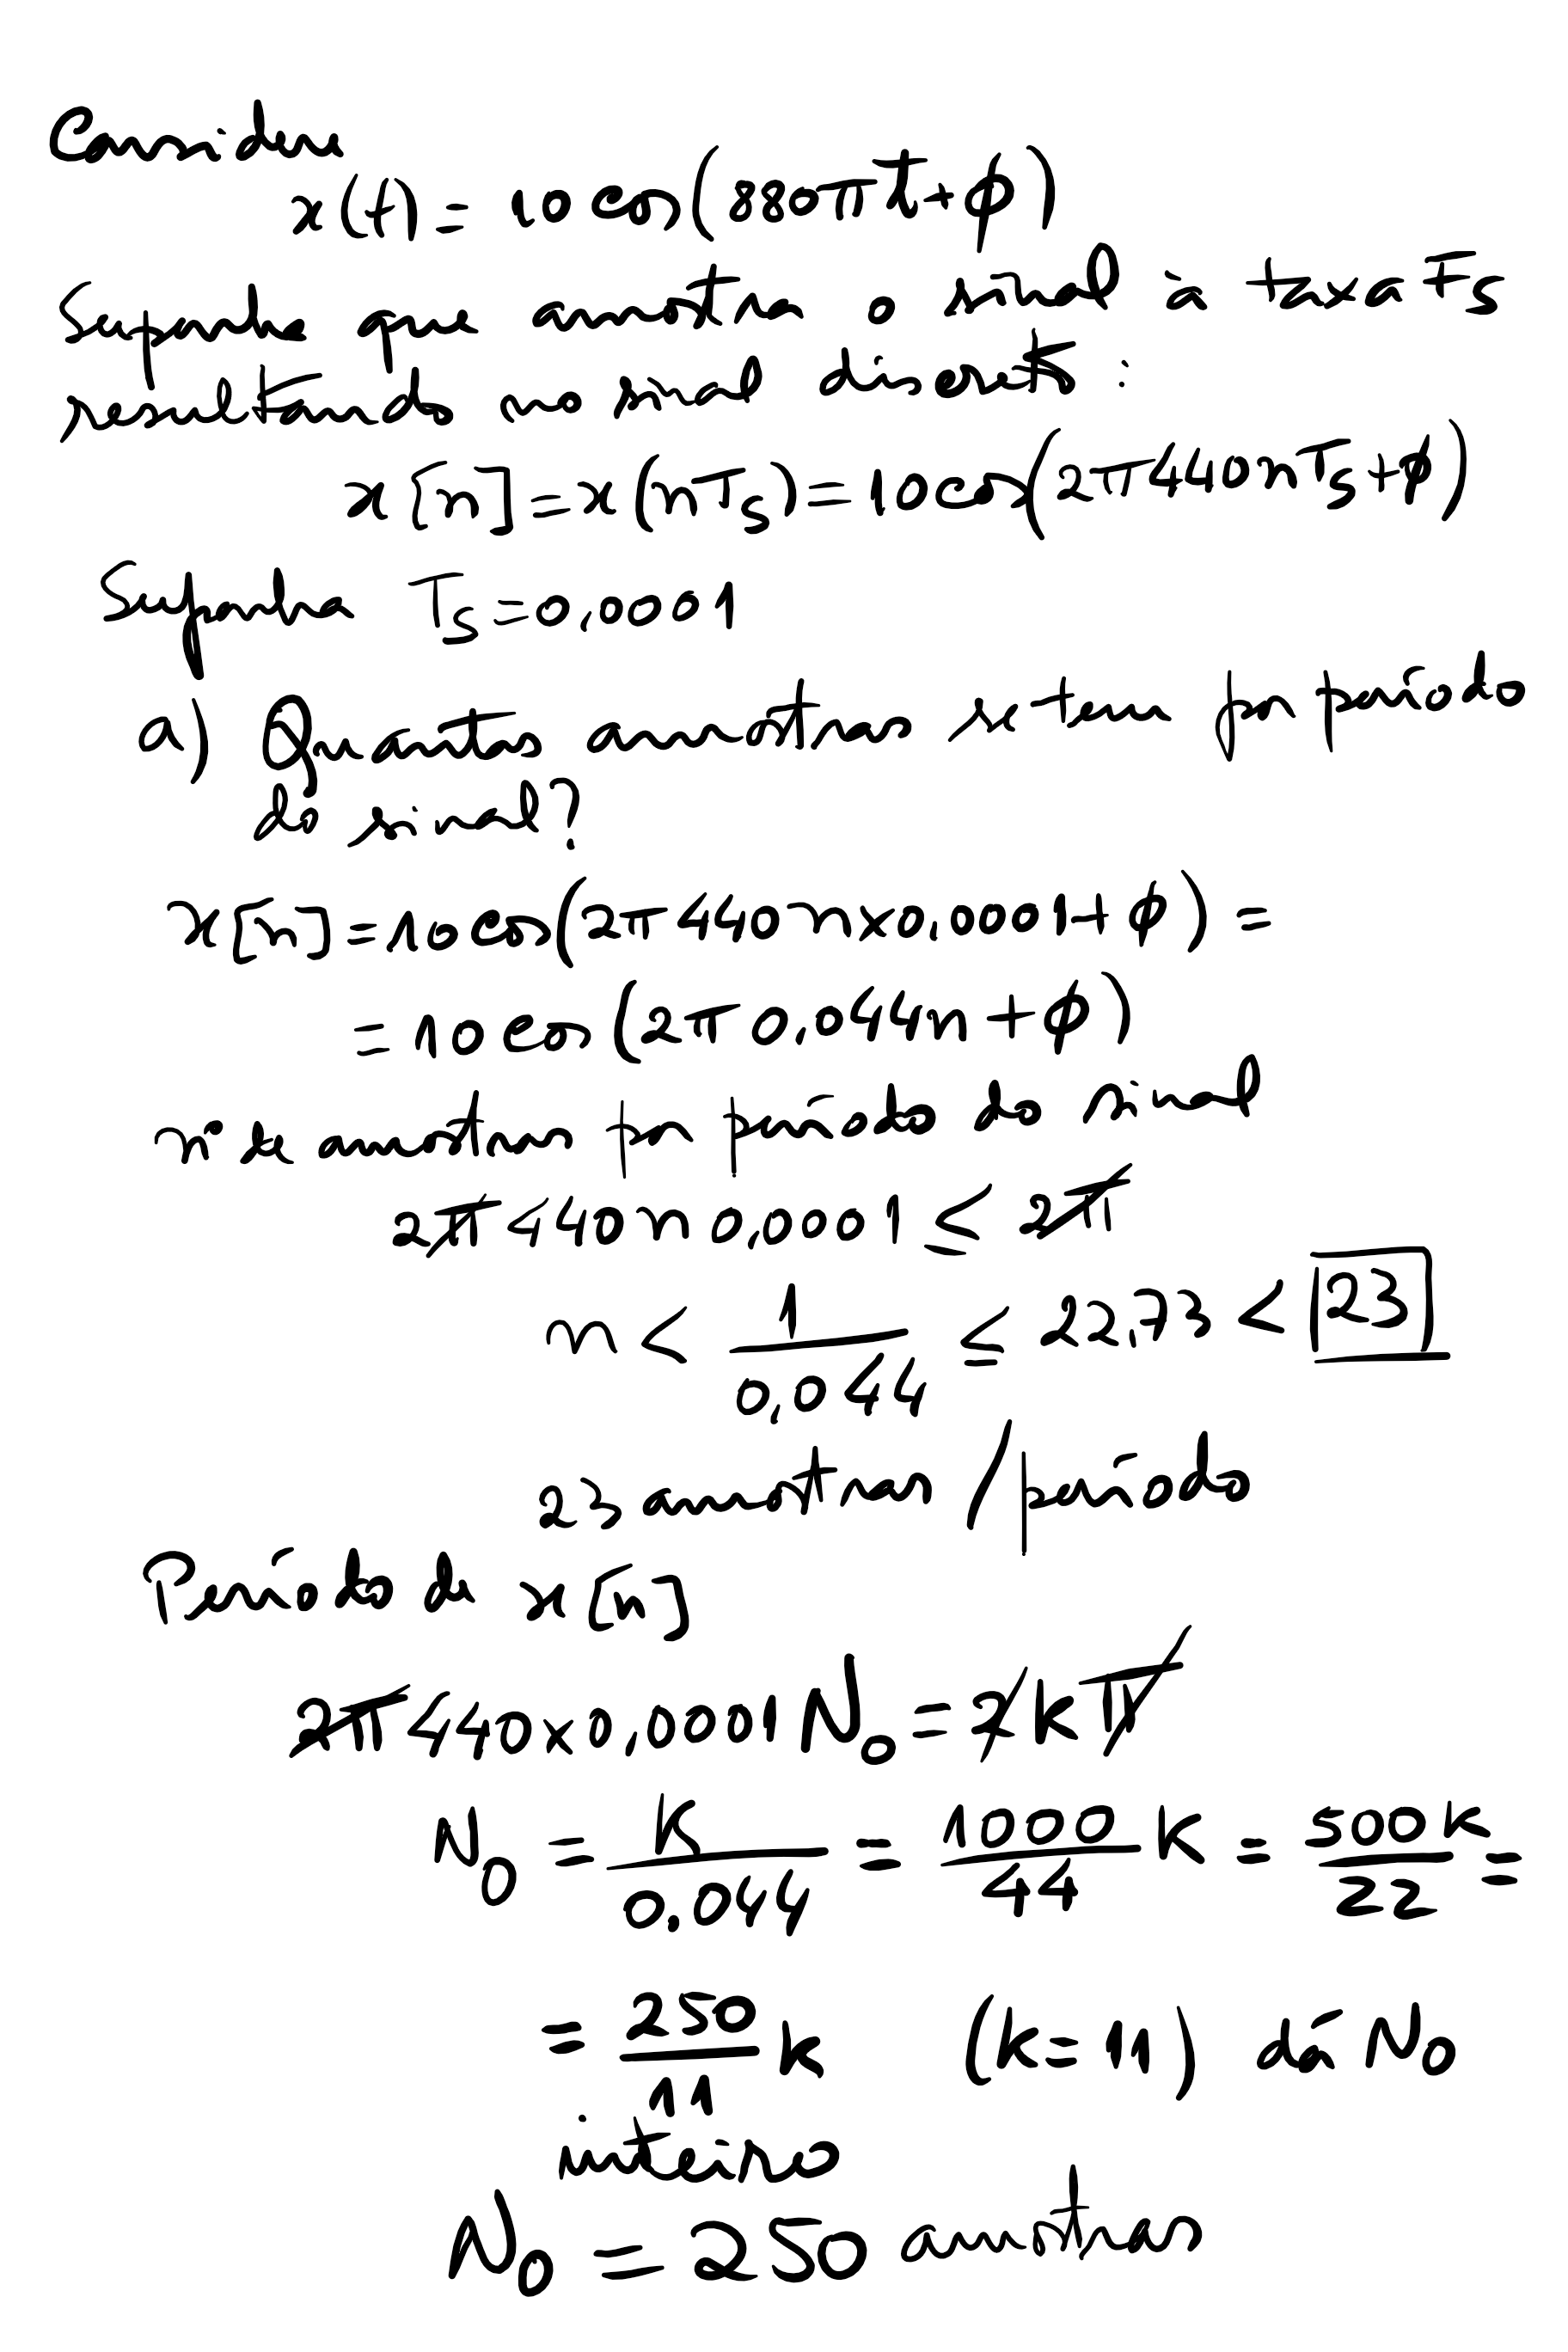 Considere
x(t) = 10 cos(880πt+φ)
Suponha que amostra o sinal à taxa Fs
resultando no sinal discreto :
x[n] = x(nTs) = 10 cos(2π440nTs+φ)
Suponha Ts=0.0001
a) Quantas amostras se tem por período
do sinal?
x[n] = 10 cos(2π440n×0.0001+φ) =
= 10 cos(2π0.044n+φ)
nº de amostras por período do sinal
2π440n0.0001 ≤ 2π
n < 1/0,044 ≤ 22,73 < 23
23 amostras / período
Período de x[n]
2π440×0.0001N₀ = 2kπ
N₀ = K/0.044 = 1000/44 K = 500K/22 =
= 250/11 k (k=11) dá N₀
inteiro
N₀ = 250 amostras